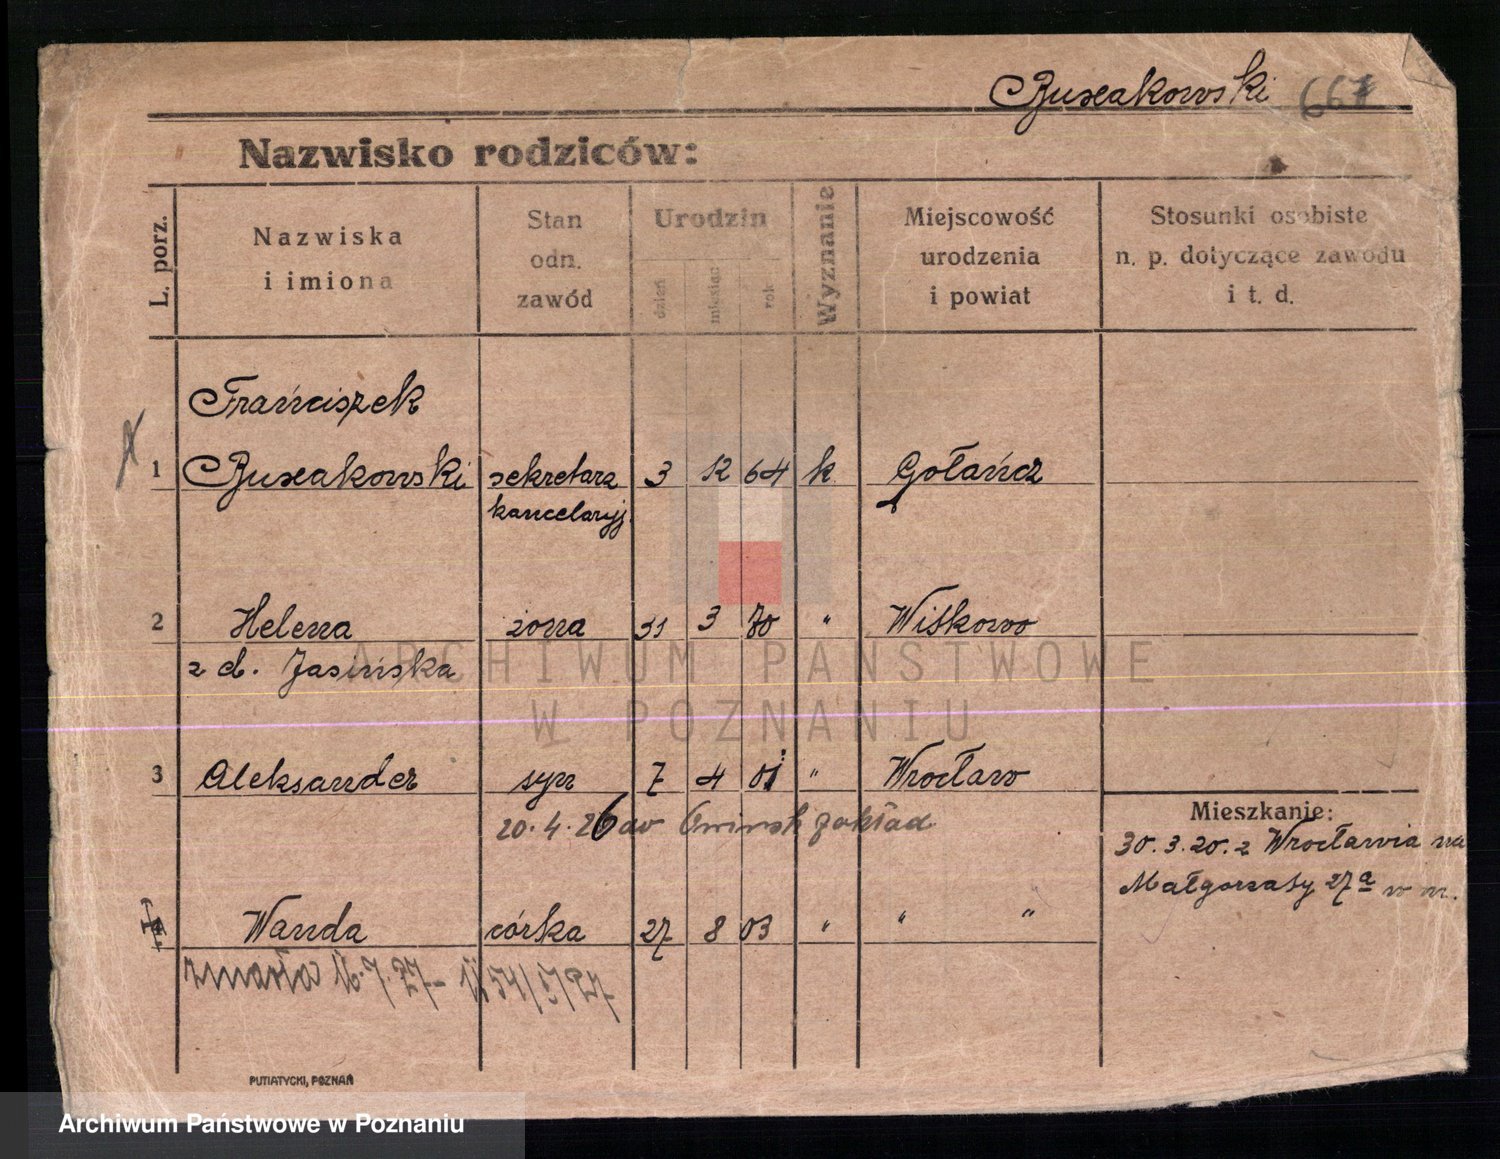 Buszakowski 667
Nazwisko rodziców:
L. porz.
Nazwiska
i imiona
Stan
odn.
zawód
Urodzin
dzień
miesiąc
rok
Wyznanie
Miejscowość
urodzenia
i powiat
Stosunki osobiste
n. p. dotyczące zawodu
i t. d.
Franciszek
1 Buszakowski sekretarz 3 12 64 k Gołańcz
kancelaryj.
2 Helena żona 31 3 70 " Witkowo
z d. Jasińska
3 Aleksander syn 7 4 01 " Wrocław
20.4.26 do Owinsk zakład
Mieszkanie:
30.3.20. z Wrocławia na
Małgorzaty 27a w m.
Wanda córka 27 8 03 " " "
zmarła
PUTIATYCKI, POZNAŃ
ARCHIWUM PAŃSTWOWE
W POZNANIU
Archiwum Państwowe w Poznaniu